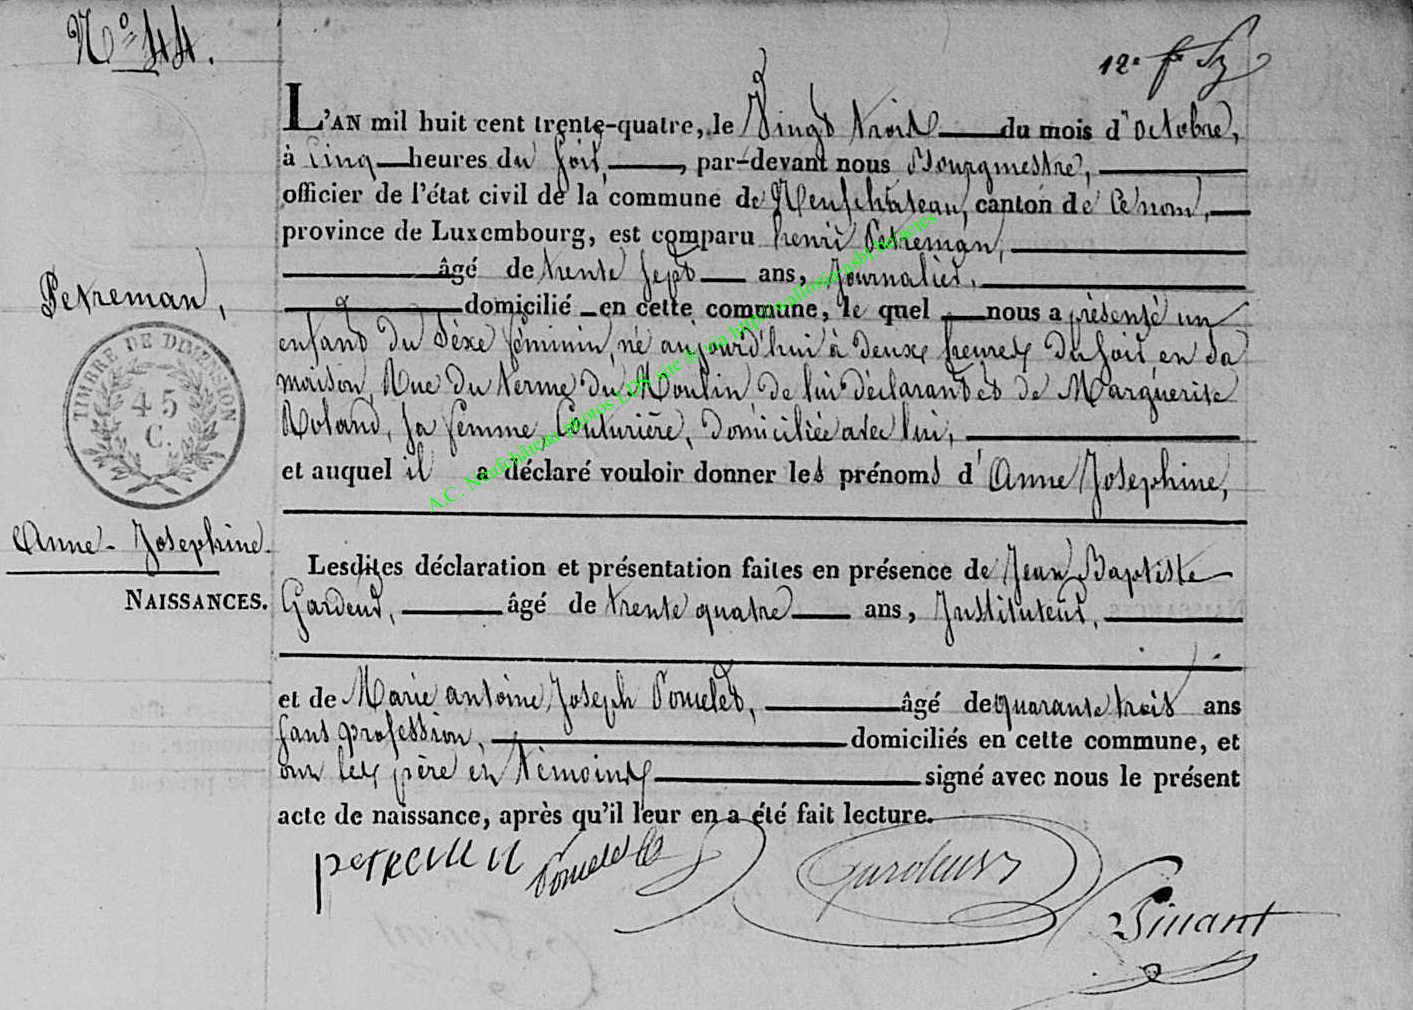 N° 44.
12e
L'AN mil huit cent trente-quatre, le Vingt trois du mois d'octobre,
à Cinq heures du soir, par-devant nous Bourgmestre,
officier de l'état civil de la commune de Neufchâteau, canton de Ce nom,
province de Luxembourg, est comparu henri Petreman,
âgé de trente sept ans, Journalier,
domicilié en cette commune, le quel nous a présenté un
enfant du Sèxe féminin, né aujourd'hui à deux heures du soir en sa
maison, Rue du terme du Moulin, de lui déclarant et de Marguerite
Roland, sa femme Couturière, domiciliée avec lui,
et auquel il a déclaré vouloir donner les prénoms d'Anne Josephine,
Petreman,
TIMBRE DE DIMENSION
45
C.
Anne-Josephine.
NAISSANCES.
Lesdites déclaration et présentation faites en présence de Jean Baptiste
Gardeur, âgé de trente quatre ans, Instituteur,
et de Marie antoine Joseph Poncelet, âgé de quarante trois ans
sans profession, domiciliés en cette commune, et
ont les père et témoins signé avec nous le présent
acte de naissance, après qu'il leur en a été fait lecture.
petreman Poncelet Gardeur
Pinant
A.C. Neufchâteau photos LDS